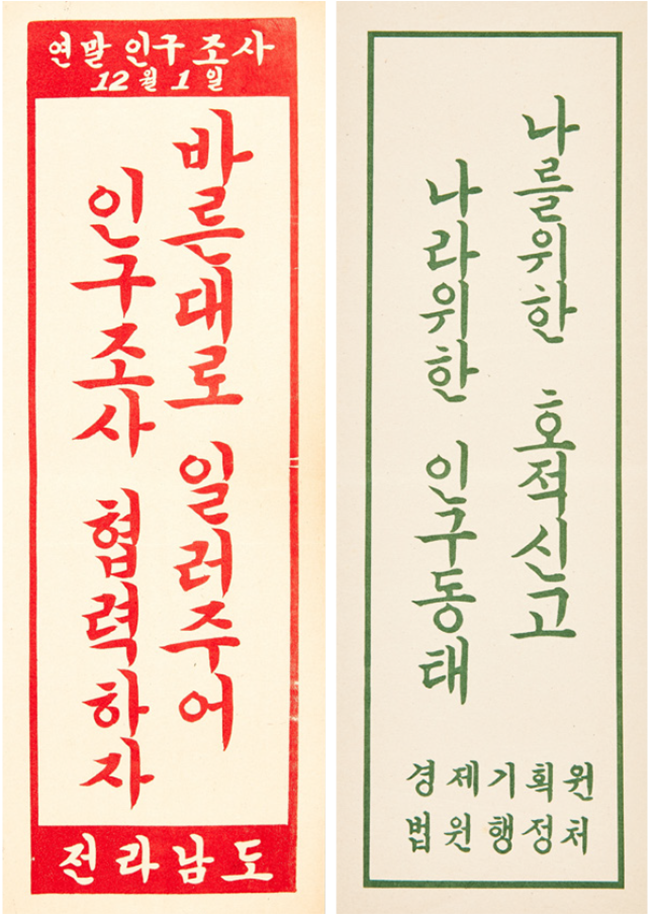 연말 인구 조사
12월 1일
바른대로 일러주어
인구조사 협력하자
전라남도
나를위한 호적신고
나라위한 인구동태
경제기획원
법원행정처